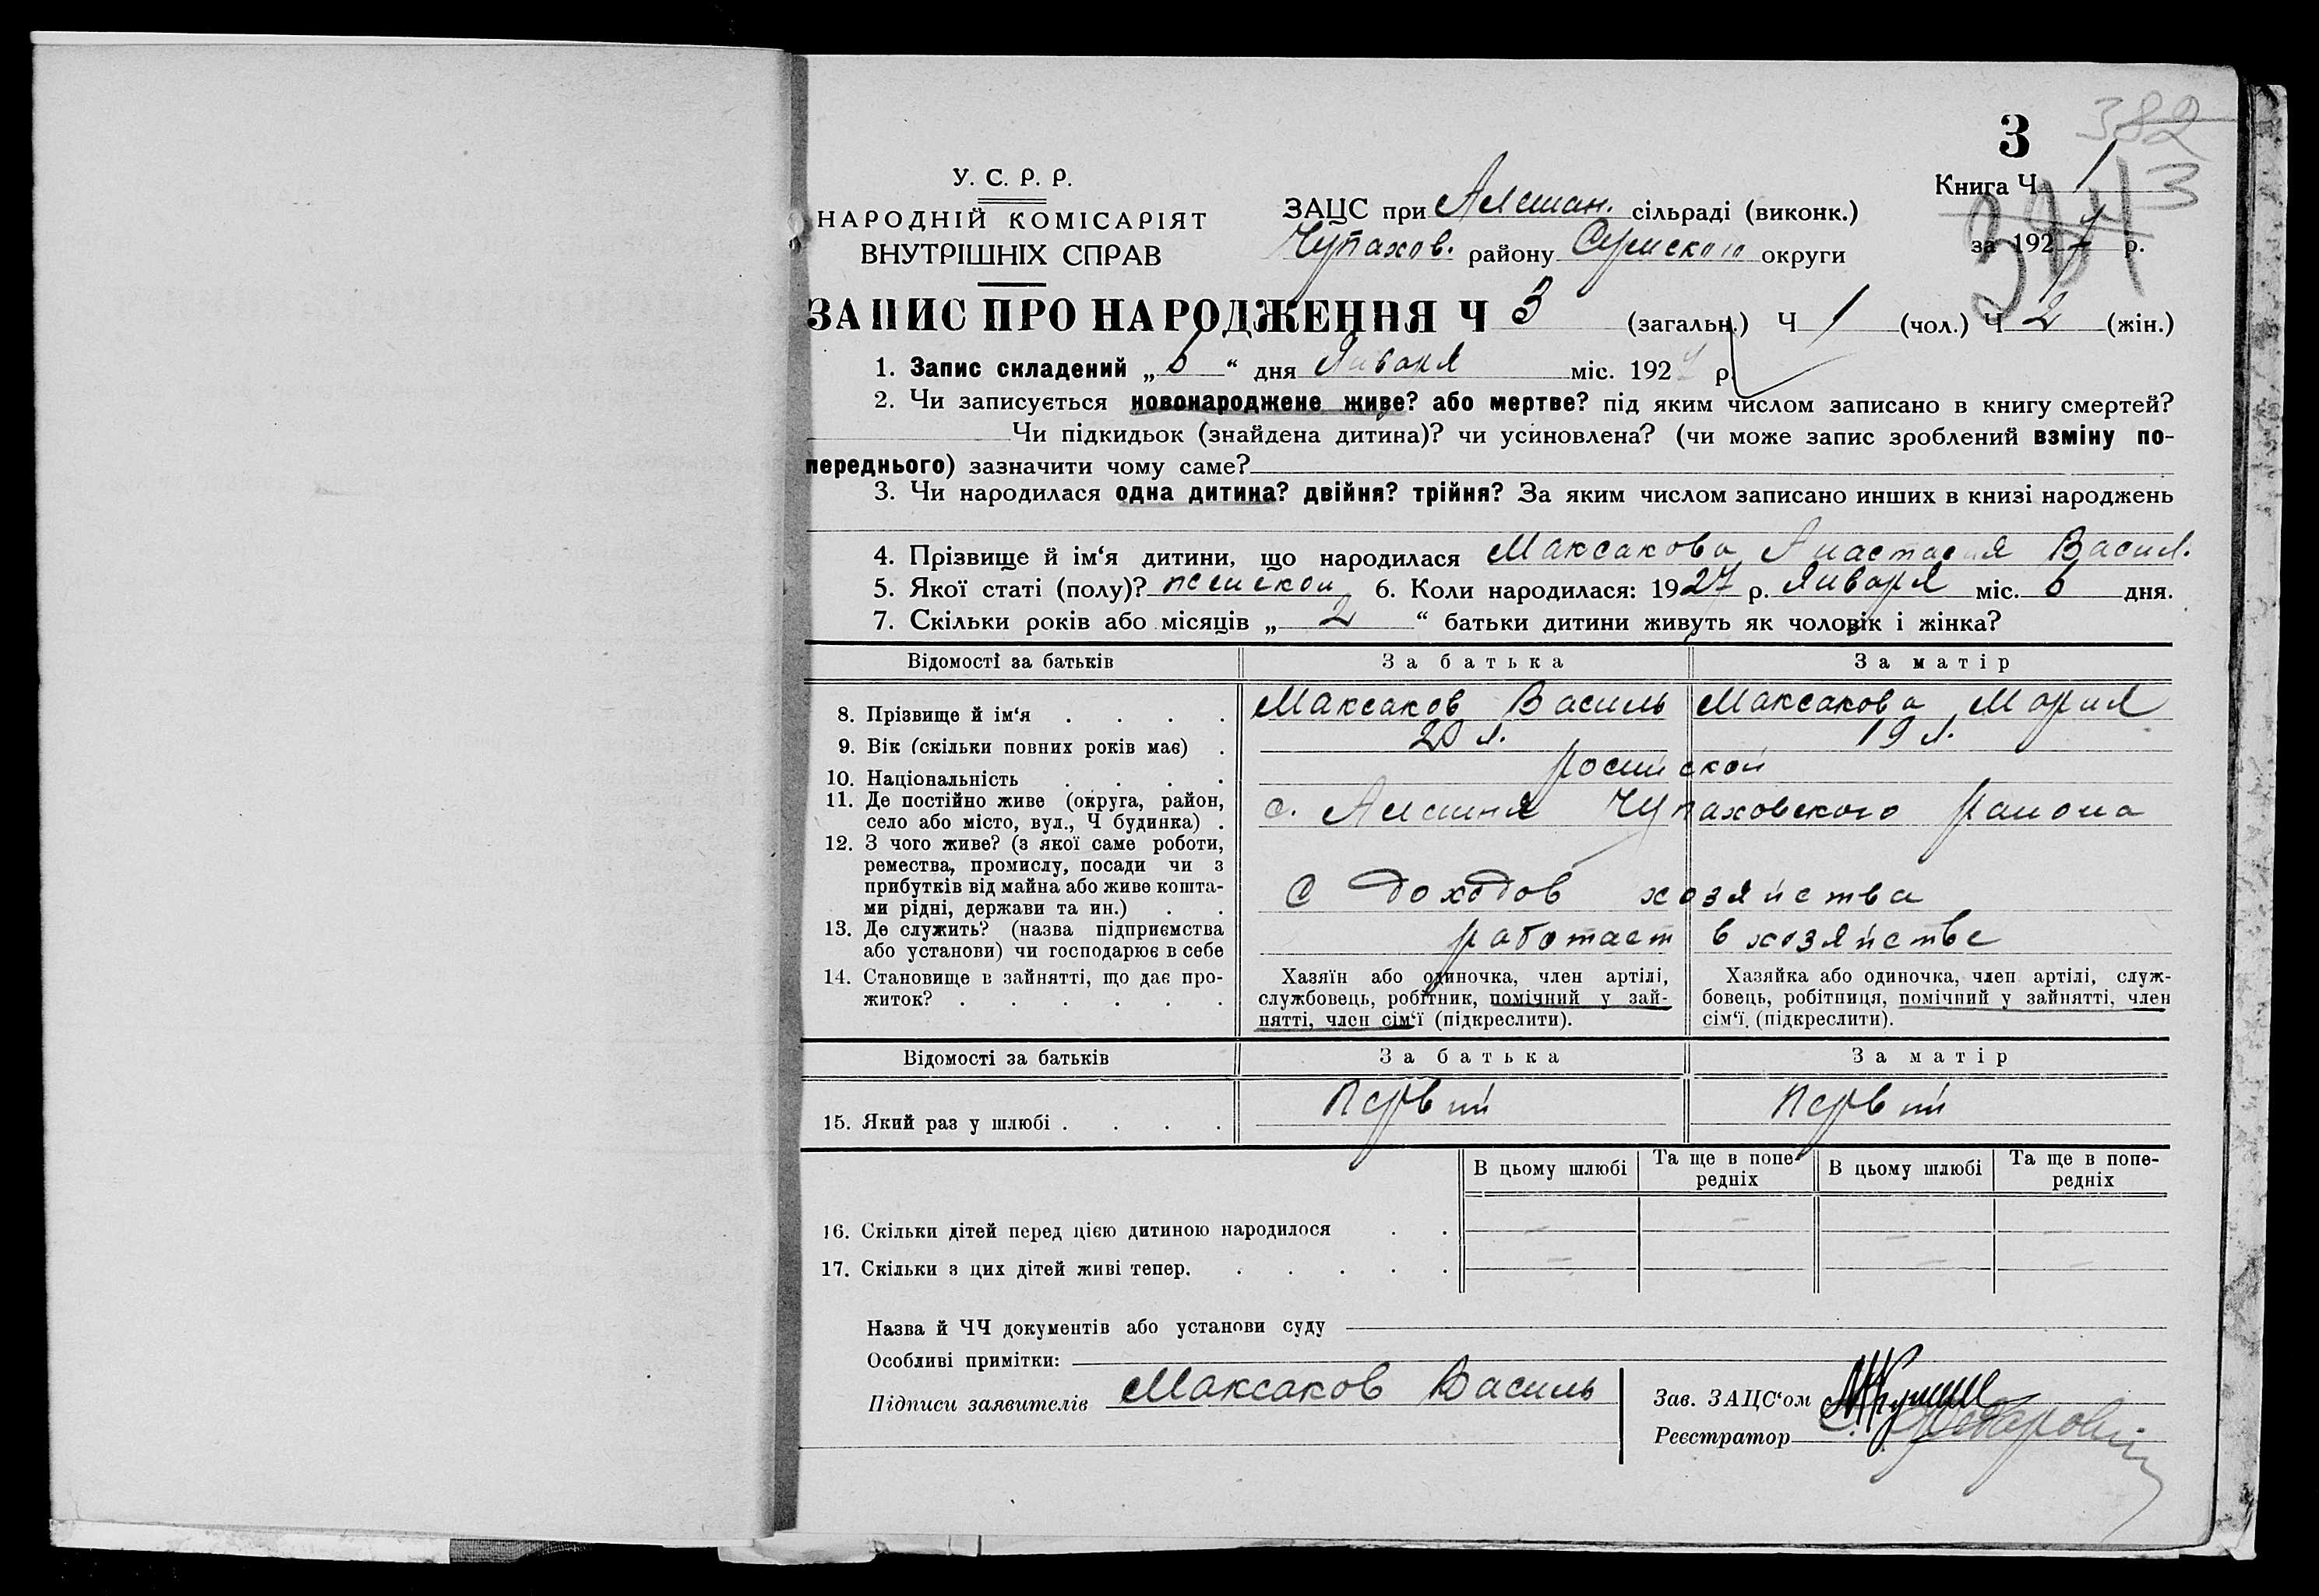 382
3
Книга Ч 1
343
У. С. Р. Р.
НАРОДНІЙ КОМІСАРІЯТ
ВНУТРІШНІХ СПРАВ
ЗАЦС при Алешан. сільраді (виконк.)
Чупахов. району Сумского округи
за 1927 р.
ЗАПИС ПРО НАРОДЖЕННЯ Ч 3 (загальн.) Ч 1 (чол.) Ч 2 (жін.)
1. Запис складений „ 6 “ дня Января міс. 1927 р.
2. Чи записується новонароджене живе? або мертве? під яким числом записано в книгу смертей?
Чи підкидьок (знайдена дитина)? чи усиновлена? (чи може запис зроблений взміну по-
переднього) зазначити чому саме?
3. Чи народилася одна дитина? двійня? трійня? За яким числом записано инших в книзі народжень
4. Прізвище й ім‘я дитини, що народилася Максакова Анастасия Васил.
5. Якої статі (полу)? женской 6. Коли народилася: 1927 р. Января міс. 6 дня.
7. Скільки років або місяців „ 2 “ батьки дитини живуть як чоловік і жінка?
Відомості за батьків За батька За матір
8. Прізвище й ім‘я . . . . Максаков Василь Максакова Мария
9. Вік (скільки повних років має) . 20 л. 19 л.
10. Національність . . . . росийской
11. Де постійно живе (округа, район,
село або місто, вул., Ч будинка) . с. Алешня Чупаховского района
12. З чого живе? (з якої саме роботи,
ремества, промислу, посади чи з
прибутків від майна або живе кошта-
ми рідні, держави та ин.) . . С доходов хозяйства
13. Де служить? (назва підприємства
або установи) чи господарює в себе работает в хозяйстве
14. Становище в зайнятті, що дає про-
житок? . . . . . .
Хазяїн або одиночка, член артілі,
службовець, робітник, помічний у зай-
нятті, член сім‘ї (підкреслити).
Хазяйка або одиночка, член артілі, служ-
бовець, робітниця, помічний у зайнятті, член
сім‘ї. (підкреслити).
Відомості за батьків За батька За матір
15. Який раз у шлюбі . . . . Первий Первий
В цьому шлюбі Та ще в попе-
редніх В цьому шлюбі Та ще в попе-
редніх
16. Скільки дітей перед цією дитиною народилося . . – – – –
17. Скільки з цих дітей живі тепер. . . . . . – – – –
Назва й ЧЧ документів або установи суду
Особливі примітки:
Підписи заявителів Максаков Василь
Зав. ЗАЦС‘ом
Реєстратор